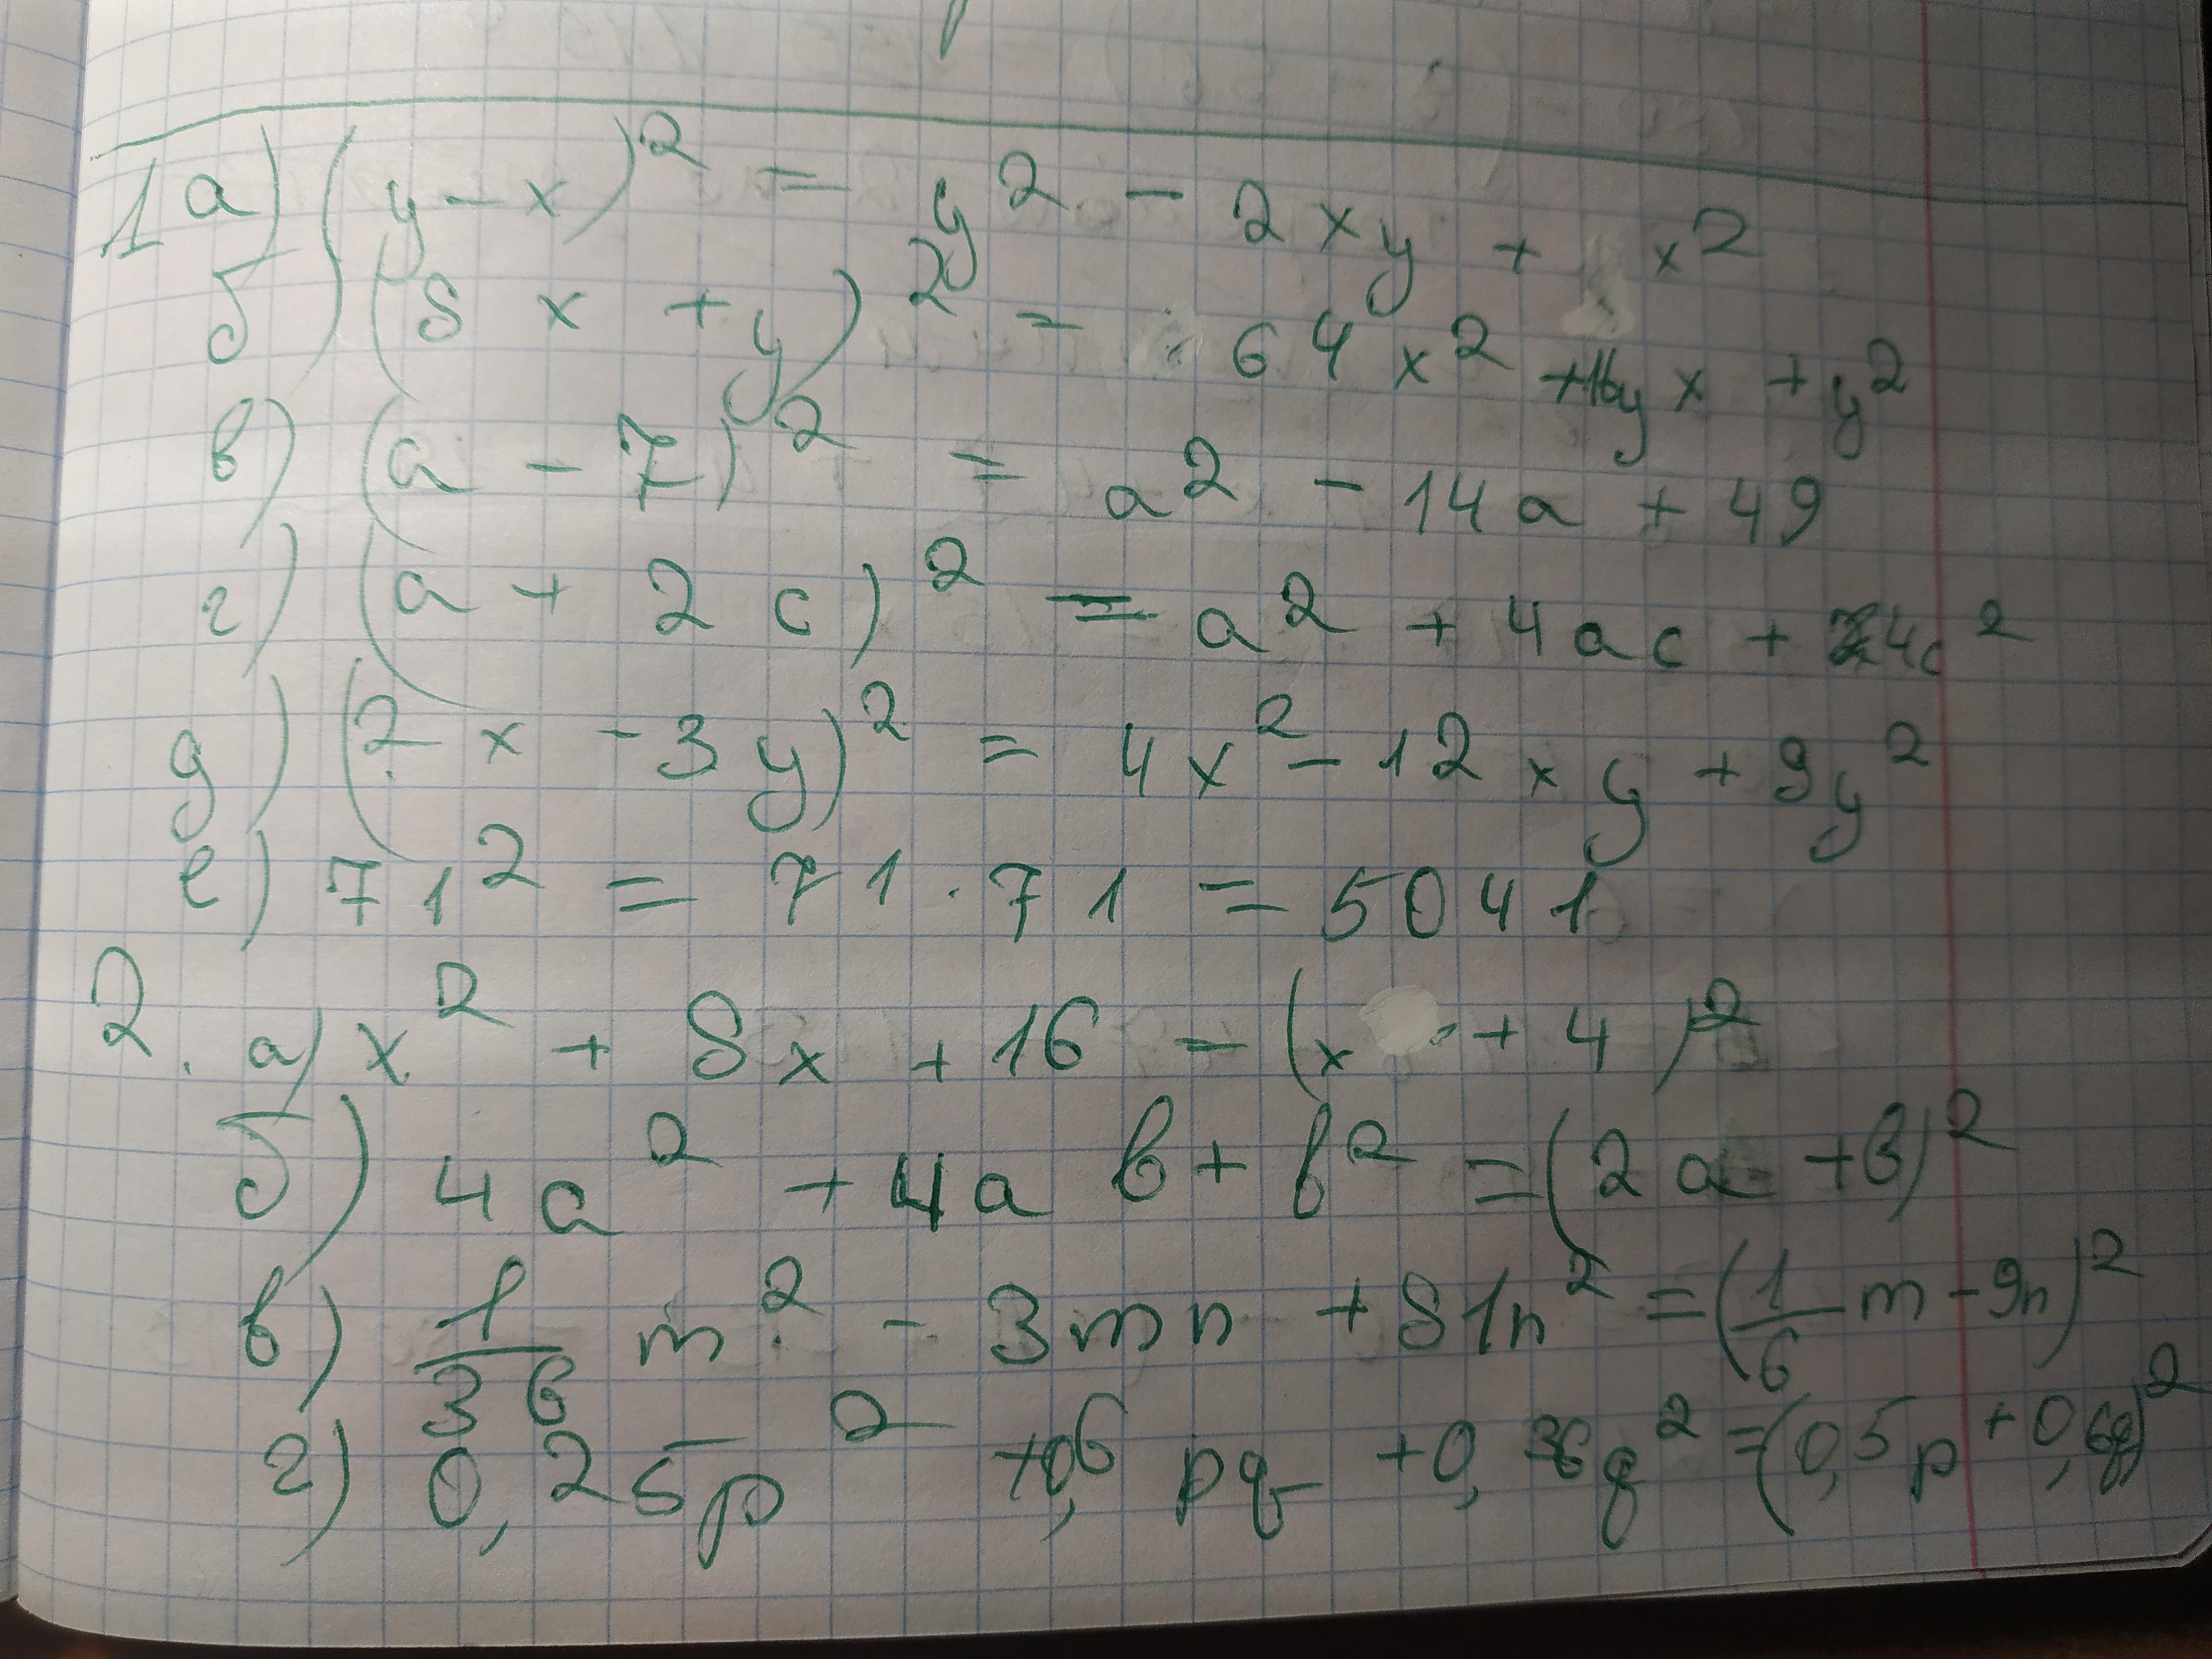 1 а) (y - x)² = y² - 2xy + x²
б) (8x + y)² = 64x² + 16yx + y²
в) (a - 7)² = a² - 14a + 49
г) (a + 2c)² = a² + 4ac + 4c²
д) (2x - 3y)² = 4x² - 12xy + 9y²
е) 71² = 71 · 71 = 5041
2. а) x² + 8x + 16 - (x + 4)²
б) 4a² + 4ab + b² = (2a + b)²
в) 1/36 m² - 3mn + 81n² = (1/6 m - 9n)²
г) 0,25p² + 0,6pq + 0,36q² = (0,5p + 0,6q)²